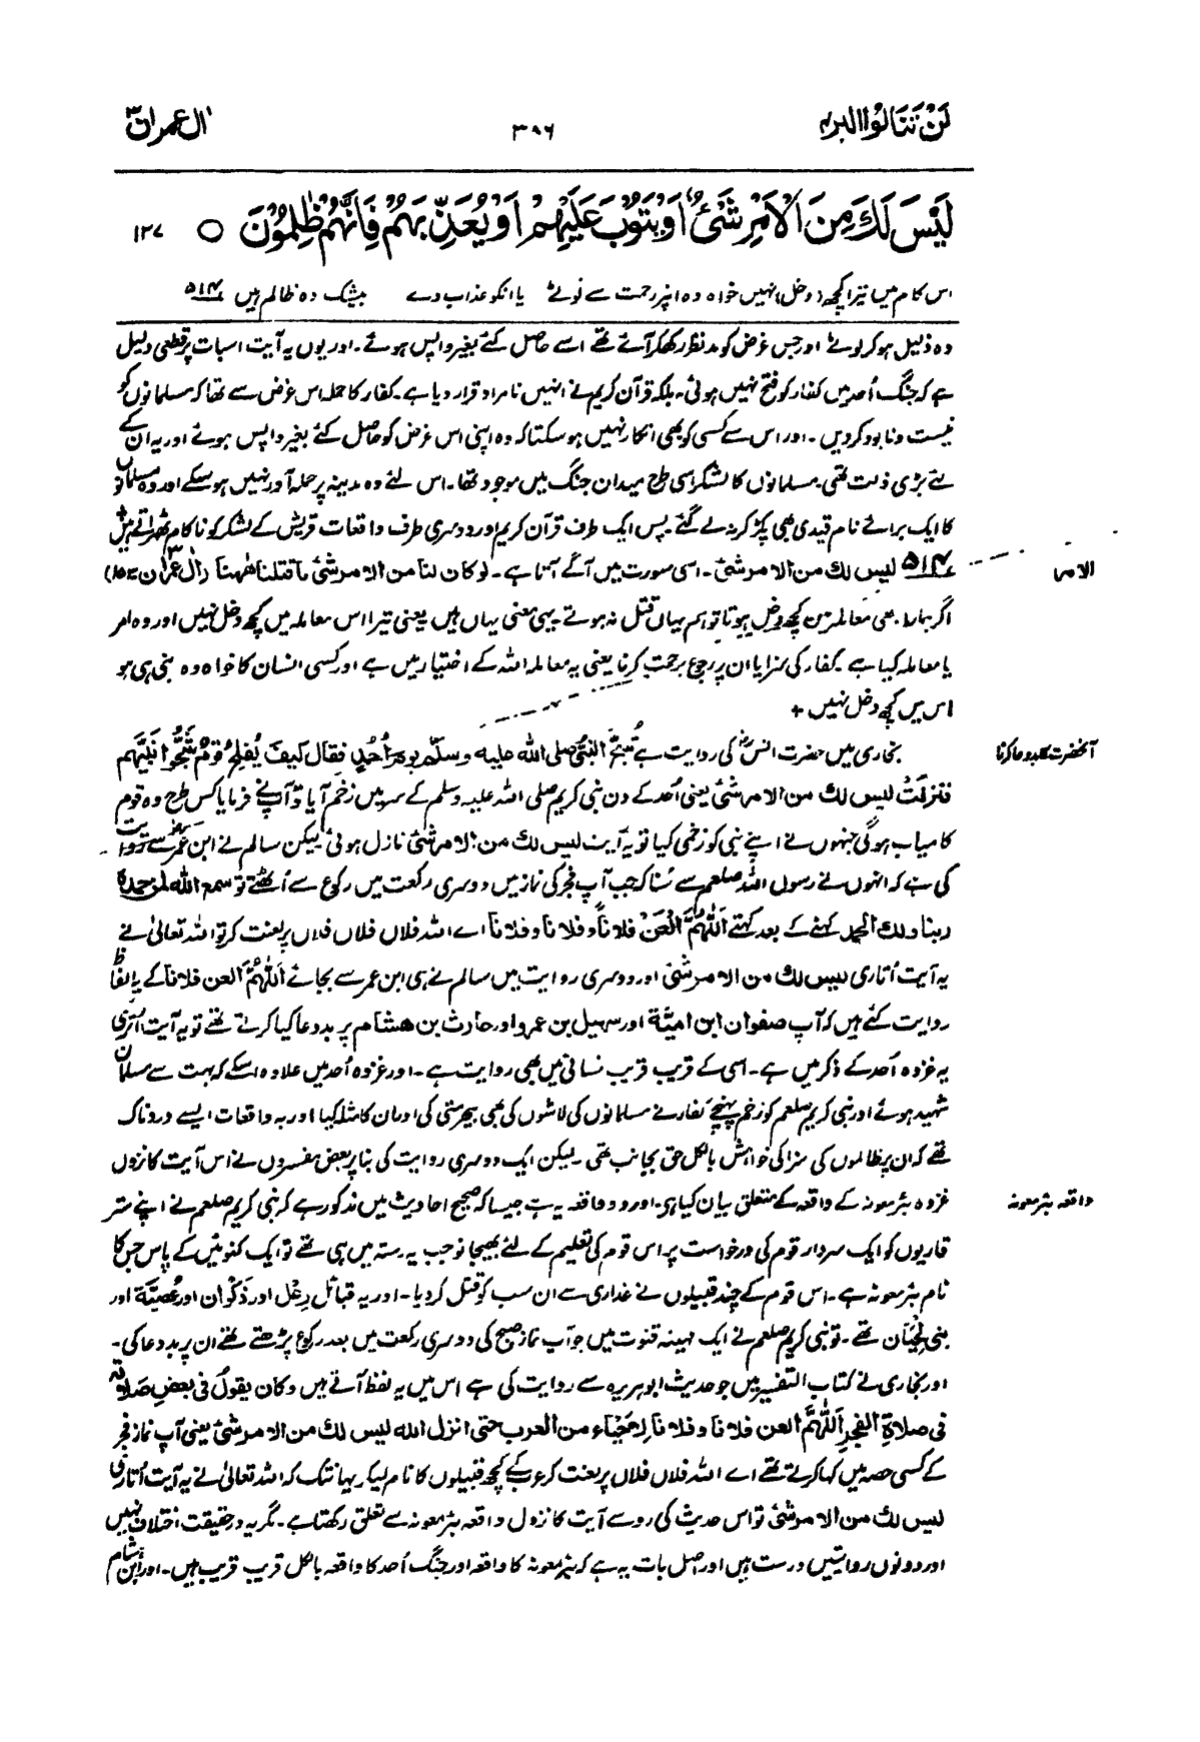 لَنْ تَنَالُوْا البر۴
۳۸۶
اٰل عمران ۳
لَيْسَ لَكَ مِنَ الْاَمْرِ شَيْءٌ اَوْ يَتُوْبَ عَلَيْهِمْ اَوْ يُعَذِّبَهُمْ فَاِنَّهُمْ ظٰلِمُوْنَ ○ ۱۲۷
اس کام میں تیرا کچھ (دخل) نہیں خواہ وہ ان پر رحمت سے لوٹے یا انکو عذاب دے بیشک وہ ظالم ہیں ۵۱۴
وہ ذلیل ہو کر لوٹے اور جس غرض کو مدنظر رکھکر آئے تھے اسے حاصل کئے بغیر واپس ہوئے۔ اور یوں یہ آیت اسبات پر قطعی دلیل
ہے کہ جنگ اُحد میں کفار کو فتح نہیں ہوئی۔ بلکہ قرآن کریم نے انہیں نامراد قرار دیا ہے۔ کفار کا حملہ اس غرض سے تھا کہ مسلمانوں کو
نیست و نابود کردیں۔ اور اس سے کسی کو بھی انکار نہیں ہو سکتا کہ وہ اپنی اس غرض کو حاصل کئے بغیر واپس ہوئے اور یہ ان کے
لئے بڑی ذلت تھی۔ مسلمانوں کا لشکر اسی طرح میدان جنگ میں موجود تھا۔ اس لئے وہ مدینہ پر حملہ آور نہیں ہو سکے اور وہ مسلمانوں
کا ایک برائے نام قیدی بھی پکڑ کر نہ لے گئے۔ پس ایک طرف قرآن کریم اور دوسری طرف واقعات قریش کے لشکر کو ناکام ٹھیراتے ہیں
الامر
۵۱۴ لیس لك من الامر شئ۔ اسی سورت میں آگے آتا ہے۔ لو كان لنا من الامر شئ ما قتلنا ههنا (اٰل عمران ۱۵۳)
اگر ہمارا بھی معاملہ میں کچھ دخل ہوتا تو ہم یہاں قتل نہ ہوتے یہی معنی یہاں ہیں یعنی تیرا اس معاملہ میں کچھ دخل نہیں اور وہ امر
یا معاملہ کیا ہے کفار کی سزا یا ان پر رجوع برحمت کرنا یعنی یہ معاملہ اللہ کے اختیار میں ہے اور کسی انسان کا خواہ وہ نبی ہی ہو
اس میں کچھ دخل نہیں +
آنحضرت کا بددعا کرنا
بخاری میں حضرت انسؓ کی روایت ہے شُجَّ النبيُّ صلى الله عليه وسلم يومَ اُحُدٍ فقال كيفَ يُفلِحُ قومٌ شَجُّوا نَبِيَّهم
فنزلَتْ ليس لك من الامر شئ یعنی اُحد کے دن نبی کریم صلی اللہ علیہ وسلم کے سر میں زخم آیا تو آپؐ نے فرمایا کس طرح وہ قوم
کامیاب ہوگی جنہوں نے اپنے نبی کو زخمی کیا تو یہ آیت لیس لك من الامر شئ نازل ہوئی لیکن سالم نے ابن عمرؓ سے روایت
کی ہے کہ انہوں نے رسول اللہ صلعم سے سُنا کہ جب آپ فجر کی نماز میں دوسری رکعت میں رکوع سے اُٹھتے تو سمع الله لمن حمده
ربنا ولك الحمد کہنے کے بعد کہتے اَللّٰهُمَّ الْعَنْ فلاناً و فلانا و فلانا اے اللہ فلاں فلاں فلاں پر لعنت کر تو اللہ تعالیٰ نے
یہ آیت اُتاری لیس لك من الامر شئ اور دوسری روایت میں سالم نے ہی ابن عمر سے بجائے اَللّٰهُمَّ العن فلانا کے یہ الفاظ
روایت کئے ہیں کہ آپ صفوان ابن امیۃ اور سہیل بن عمرو اور حارث بن ھشام پر بددعا کیا کرتے تھے تو یہ آیت اُتری
یہ غزوہ اُحد کے ذکر میں ہے۔ اسی کے قریب قریب نسائی میں بھی روایت ہے۔ اور غزوہ اُحد میں علاوہ اسکے کہ بہت سے مسلمان
شہید ہوئے اور نبی کریم صلعم کو زخم پہنچے کفار نے مسلمانوں کی لاشوں کی بھی بیحرمتی کی اور ان کا مثلہ کیا اور یہ واقعات ایسے دردناک
تھے کہ ان پر ظالموں کی سزا کی خواہش بالکل حق بجانب تھی۔ لیکن ایک دوسری روایت کی بنا پر بعض مفسروں نے اس آیت کا نزول
واقعہ بئر معونہ
غزوہ بئر معونہ کے واقعہ کے متعلق بیان کیا ہی۔ اور وہ واقعہ یہ ہے جیسا کہ صحیح احادیث میں مذکور ہے کہ نبی کریم صلعم نے اپنے ستر
قاریوں کو ایک سردار قوم کی درخواست پر اس قوم کی تعلیم کے لئے بھیجا تو جب یہ رستہ میں ہی تھے تو ایک کنوئیں کے پاس جس کا
نام بئر معونہ ہے۔ اس قوم کے چند قبیلوں نے غداری سے ان سب کو قتل کردیا۔ اور یہ قبائل رِعْل اور ذَکْوان اور عُصَیَّۃ اور
بنی لِحْیَان تھے۔ تو نبی کریم صلعم نے ایک مہینہ قنوت میں جو آپ نماز صبح کی دوسری رکعت میں بعد رکوع پڑھتے تھے ان پر بددعا کی۔
اور بخاری نے کتاب التفسیر میں جو حدیث ابو ہریرہ سے روایت کی ہے اس میں یہ لفظ آتے ہیں وكان يقولُ فى بعضِ صَلاته
فى صلاةِ الفجرِ اَللّٰهُمَّ العن فلانا و فلانا لِاَحْيَاء من العرب حتى انزل الله ليس لك من الامر شئ یعنی آپ نماز فجر
کے کسی حصہ میں کہا کرتے تھے اے اللہ فلاں فلاں پر لعنت کر عرب کے کچھ قبیلوں کا نام لیکر یہانتک کہ اللہ تعالیٰ نے یہ آیت اُتاری
لیس لك من الامر شئ تو اس حدیث کی رو سے آیت کا نزول واقعہ بئر معونہ سے تعلق رکھتا ہے۔ مگر یہ درحقیقت اختلاف نہیں
اور دونوں روایتیں درست ہیں اور اصل بات یہ ہے کہ بئر معونہ کا واقعہ اور جنگ اُحد کا واقعہ بالکل قریب قریب ہیں۔ اور ابن ہشام